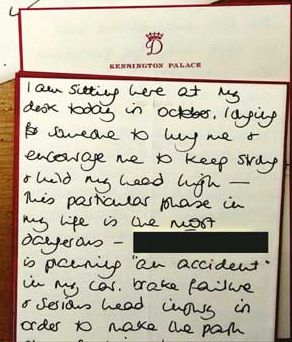 D
KENSINGTON PALACE
I am sitting here at my
desk today in october, longing
for someone to hug me &
encourage me to keep strong
& hold my head high —
This particular phase in
my life is the most
dangerous —
is planning "an accident"
in my car. brake failure
& serious head injury in
order to make the path